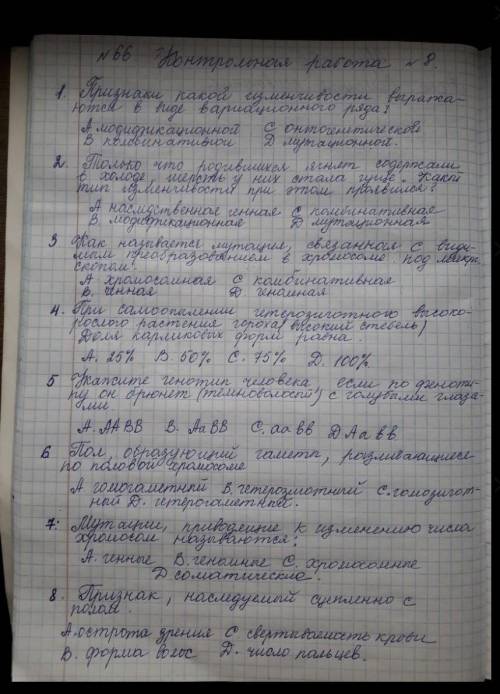 №66 Контрольная работа №8.
1. Признаки какой изменчивости выража-
ются в виде вариационного ряда?
А модификационной С онтогенетической
В комбинативной Д мутационной.
2. Только что родившихся ягнят содержали
в холоде, шерсть у них стала гуще. Какой
тип изменчивости при этом проявился?
А наследственная генная С комбинативная
В. модификационная Д мутационная
3 Как называется мутация, связанная с види-
мым преобразованием в хромосоме под микро-
скопом?
А хромосомная С комбинативная
В. генная Д. геномная
4. При самоопылении гетерозиготного высоко-
рослого растения гороха (высокий стебель)
Доля карликовых форм равна.
А. 25% В. 50% С. 75% D. 100%
5 Укажите генотип человека если по феноти-
пу он брюнет (темноволосый) с голубыми глаза-
ми
А. ААВВ В. АаВВ С. аавв Д Аавв
6 Пол, образующий гаметы, различающиеся
по половой хромосоме
А гомогаметный В. гетерозиготный С. гомозигот-
ный Д. гетерогаметный.
7: Мутации, приводящие к изменению числа
хромосом называются:
А. генные В. геномные С. хромосомные
Д соматические.
8. Признак, наследуемый сцепленно с
полом.
А. острота зрения С свертываемость крови
В. форма волос Д. число пальцев.